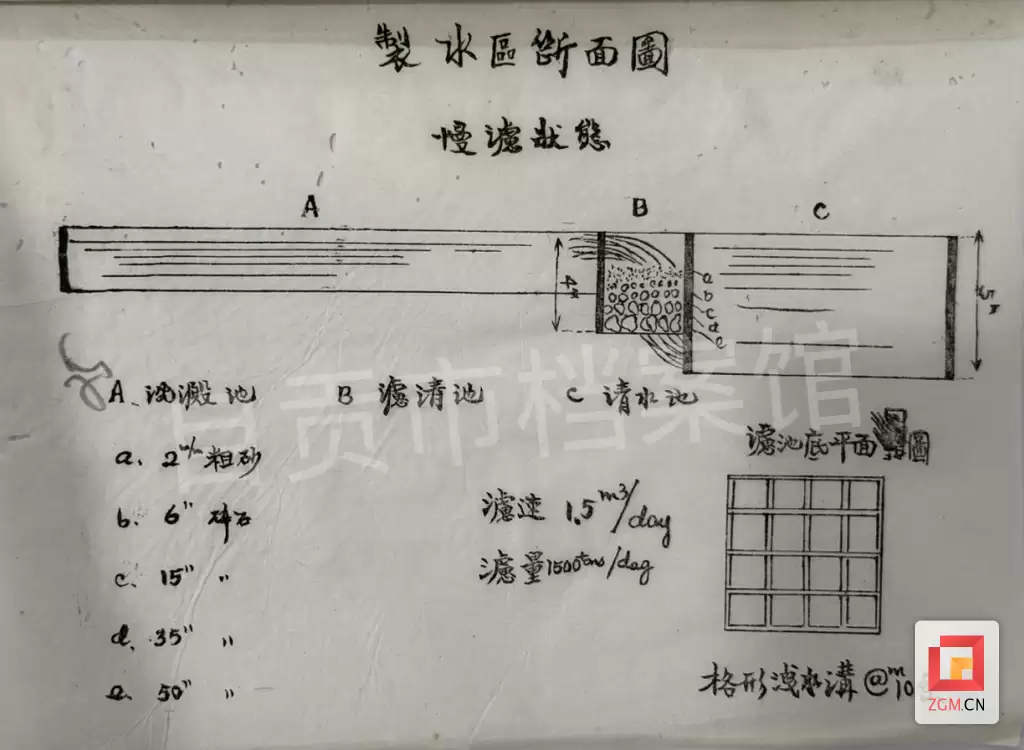 製水區斷面圖
慢濾狀態
A B C
4m
a
b
c
d
e
5m
A、沈澱池 B 濾清池 C 清水池
a、2m/m粗砂
b、6" 碎石
c、15" "
d、35" "
e、50" "
濾速 1.5m3/day
濾量1500tons/day
濾池底平面圖
格形
溝@
自贡市档案馆
ZGM.CN